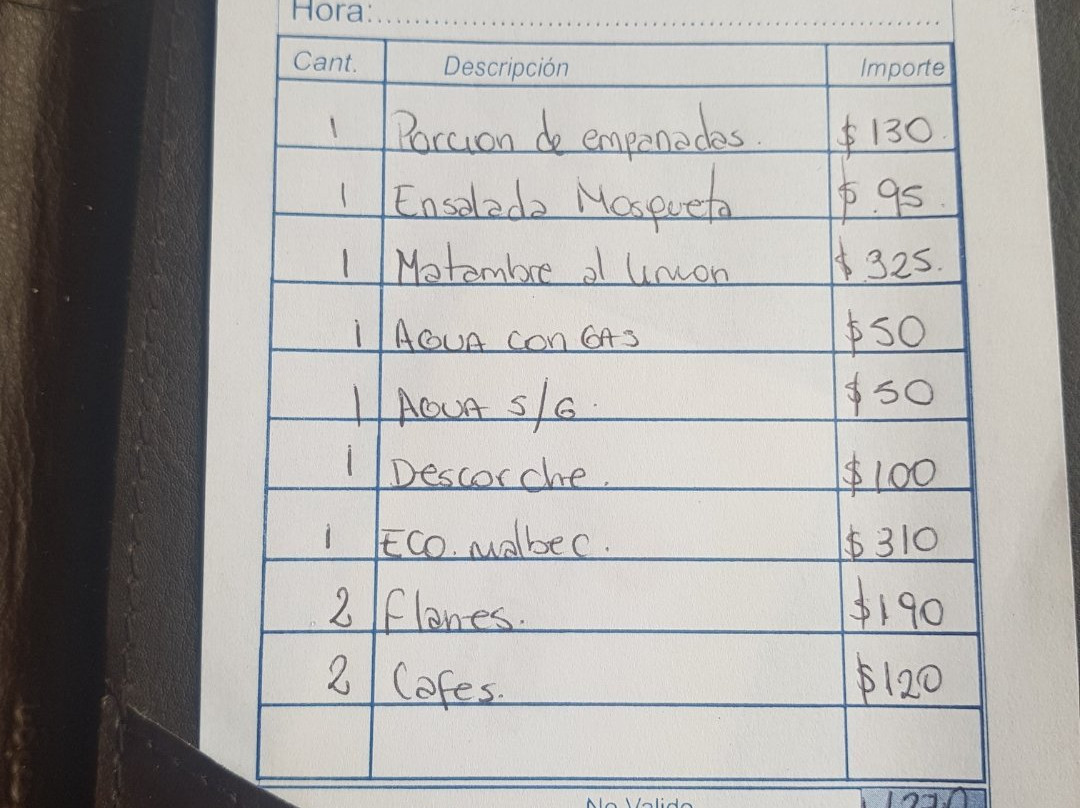 Hora:
Cant. Descripción Importe
1 Porcion de empanadas. $ 130.
1 Ensalada Mosqueta $ 95.
1 Matambre al limon $ 325.
1 AGUA con GAS $50
1 AGUA S/G. $50
1 Descorche. $100
1 ECO. malbec. $310
2 flanes. $190
2 Cafes. $120
No Valido